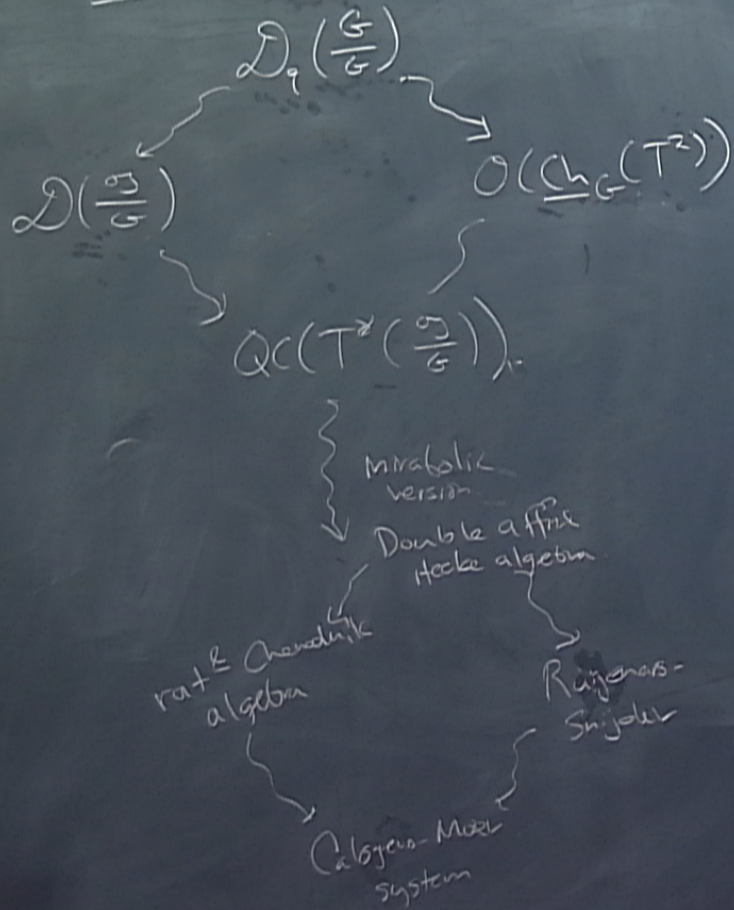 𝒟_q(G/G)
𝒟(𝔤/G)
O(Ch_G(T²))
QC(T*(𝔤/G))
Mirabolic
version
Double affine
Hecke algebra
rat^l Cherednik
algebra
Ruijsenaars-
Snijder
Calogero-Moser
system